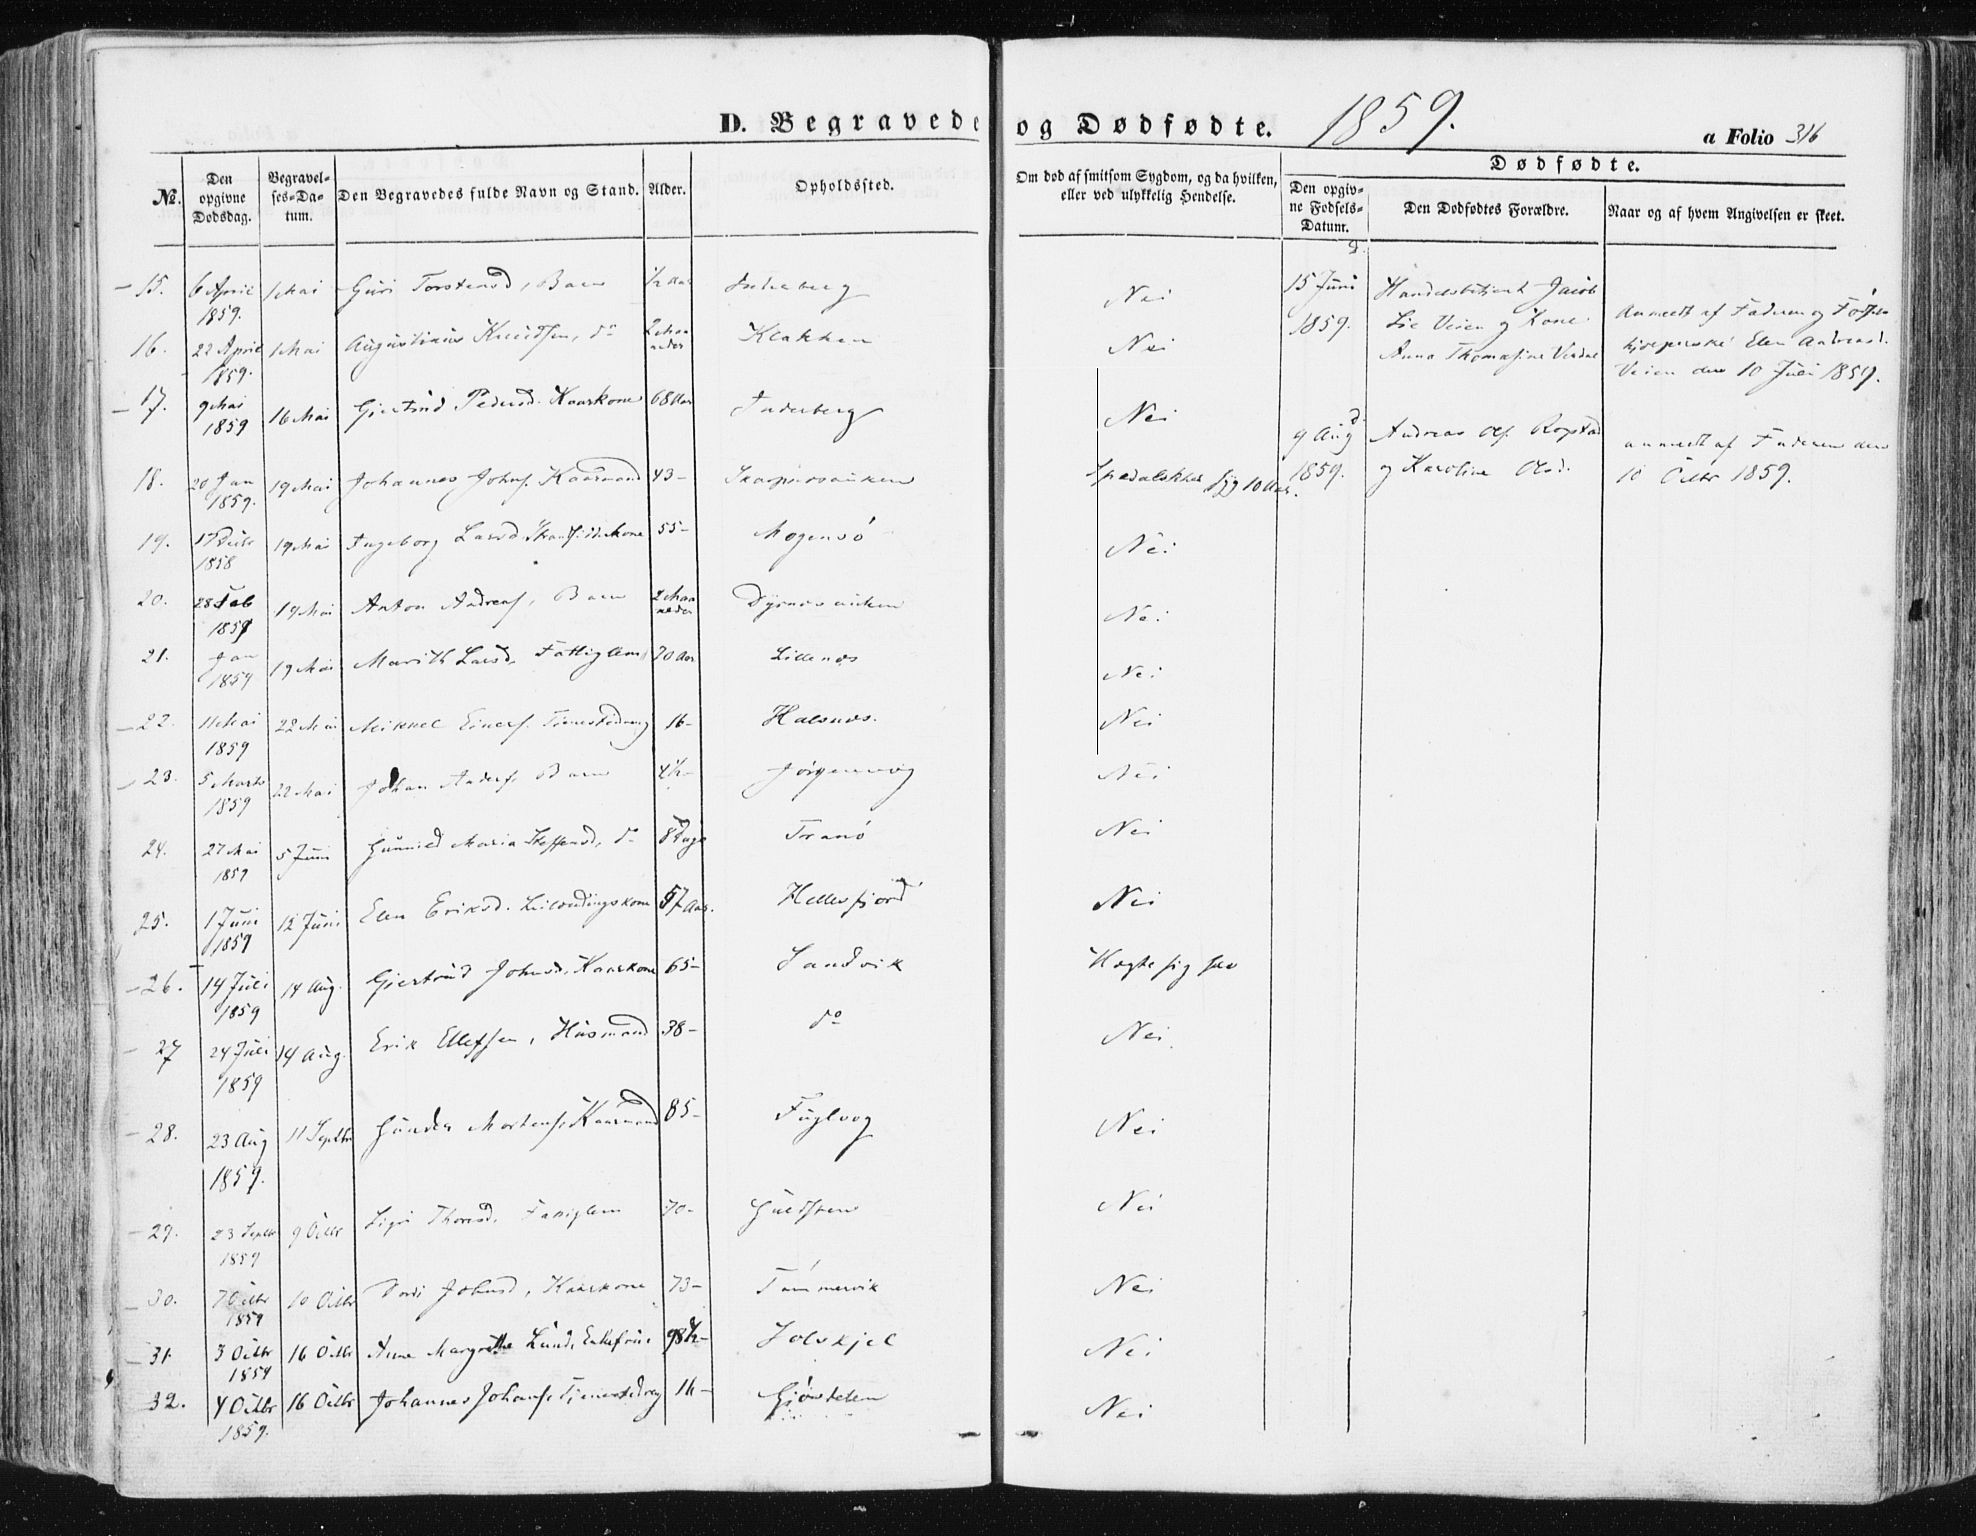 D. Begravede og Dødfødte. 1859.
a Folio 316
No. Den opgivne Dødsdag. Begravelses-Datum. Den Begravedes fulde Navn og Stand. Alder. Opholdssted. Om død af smitsom Sygdom, og da hvilken, eller ved ulykkelig Hendelse.
Dødfødte.
Den opgivne Fødsels-Datum. Den Dødfødtes Forældre. Naar og af hvem Angivelsen er skeet.
15. 6 April 1859. 1 Mai Guri Torstensd, Barn 1/2 Aar Inderberg Nei
16. 22 April 1859. 1 Mai Augustinus Knudsen, do 2 Maaneder Klakken Nei
17. 9 Mai 1859 16 Mai Giertrud Pedersd. Kaarkone 68 Aar Inderberg Nei
18. 20 Jan 1859. 19 Mai Johannes Johns. Kaarmand 43- Spedalskhed syg 10 Aar.
19. 17 Decbr 1858 19 Mai Ingeborg Larsd 55- Mogensö Nei
20. 28 Feb 1859 19 Mai Anton Andreas, Barn 2 Maaneder Dyrnesvaagen Nei
21. Jan 1859 19 Mai Marith Larsd. Fattiglem 70 Aar Lillenes Nei
22. 11 Mai 1859 22 Mai Mikael Einers. Tienestedreng 16- Halsnes. Nei
23. 5 Marts 1859 22 Mai Johan Anders. Barn 4 1/2- Jörgenvog Nei
24. 27 Mai 1859 5 Juni Gunnild Maria Steffensd, do 8 Dage Tranö Nei
25. 1 Juni 1859 12 Juni Elen Eriksd. Leilændingskone 57 Aar. Hellesfjord Nei
26. 14 Juli 1859 14 Aug. Giertrud Johnsd, Kaarkone 65- Sandvik
27 24 Juli 1859 14 Aug. Erik Ellefsen, Husmand 38- do Nei.
28. 23 Aug 1859. 11 Septbr Gunder Mortens. Kaarmand 85- Fuglvog Nei
29. 23 Septbr 1859 9 Octbr Thoresd. Fattiglem 70- Nei
30. 7 Octbr 1859 10 Octbr Dordi Johnsd, Kaarkone 73- Tömmervik Nei
31. 3 Octbr 1859 16 Octbr Anne Margrethe Lund, Enkefrue 98 1/2- Solskjel Nei
32. 4 Octbr 1859. 16 Octbr Johannes Johans. Tienestedreng 16- Nei
15 Juni 1859. Handelsbetjent Jacob Lie Veien og Kone Anna Thomasine Anmeldt af Faderen og Elen Andreasd. Veien den 10 Juli 1859.
9 Aug 1859. Andreas Ols. Ropstad og Karoline Olsd. anmeldt af Faderen den 10 Octbr 1859.